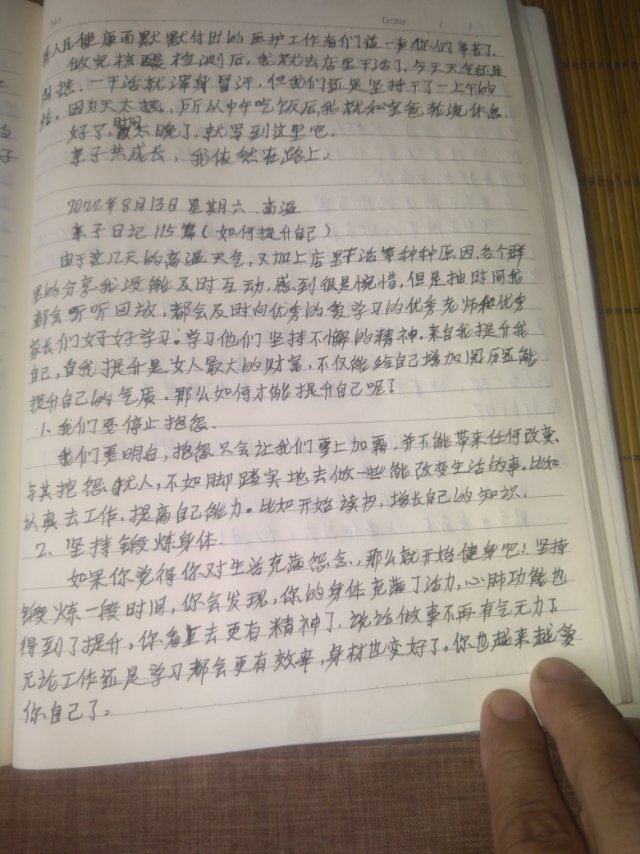 No.
Date / /
人民健康而默默付出的医护工作者们道一声你们辛苦了.
做完核酸检测后,我就去店里干活了,今天天气还是
闷热.一干活就浑身冒汗,但我们还是坚持干了一上午的
活。因为天太热,所从中午吃饭后,我就和宝爸轮流休息.
好了,时间太晚了,就写到这里吧.
亲子共成长,我依然在路上.
2022年8月13日 星期六 高温
亲子日记115篇(如何提升自己)
由于这几天的高温天气,又加上店里干活等种种原因,各个群
里的分享我没能及时互动,感到很是惋惜,但是抽时间我
都会听听回放,都会及时向优秀的爱学习的优秀老师和优秀
家长们好好学习.学习他们坚持不懈的精神.来自我提升我
自己,自我提升是女人最大的财富,不仅能给自己增加阅历还能
提升自己的气质.那么如何才能提升自己呢?
1、我们要停止抱怨.
我们要明白,抱怨只会让我们雪上加霜,并不能带来任何改变、
与其抱怨别人,不如脚踏实地去做一些能改变生活的事.比如
认真去工作,提高自己能力。比如开始读书,增长自己的知识.
2、坚持锻炼身体.
如果你觉得你对生活充满怨念,那么就开始健身吧!坚持
锻炼一段时间,你会发现,你的身体充满了活力,心肺功能也
得到了提升,你看上去更有精神了.说话做事不再有气无力了
无论工作还是学习都会更有效率,身材也变好了。你也越来越爱
你自己了。